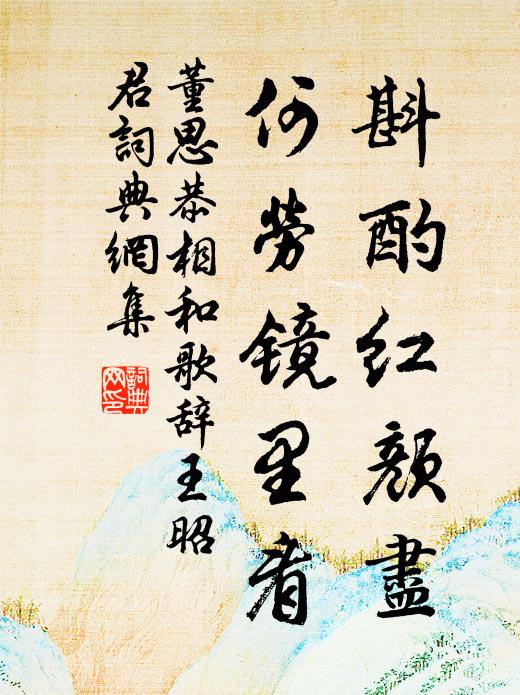 斟酌红颜盡
何勞镜里看
董思恭相和歌辞王昭
君詞典網集
詞典
网印